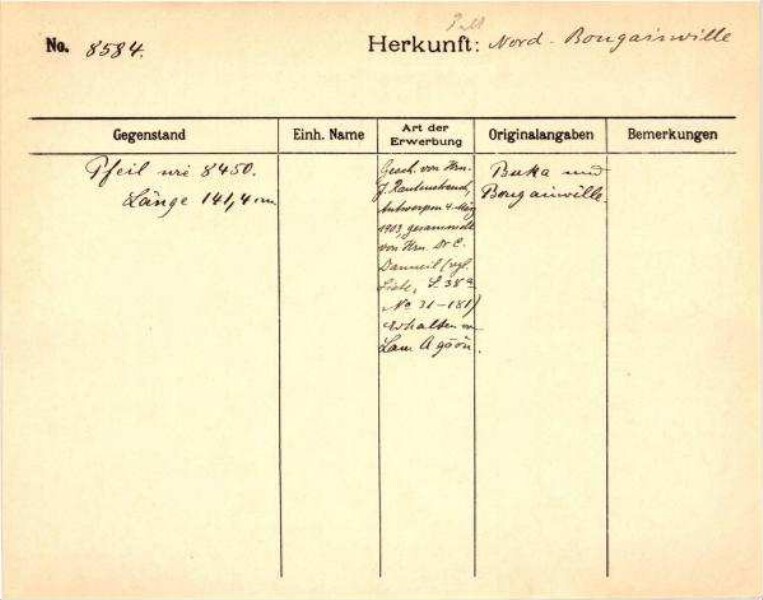 No. 8584.
Herkunft: Nord-Bougainville
Gegenstand
Einh. Name
Art der Erwerbung
Originalangaben
Bemerkungen
Pfeil wie 8450.
Länge 141,4 cm
Gesch. von Hrn.
J. Rautenstrauch,
Antwerpen 4. März
1903, gesammelt
von Hrn. Dr C.
Danneil (vgl.
Liste, S. 38a
No 31-181)
erhalten von
Lam
Buka und
Bougainville.